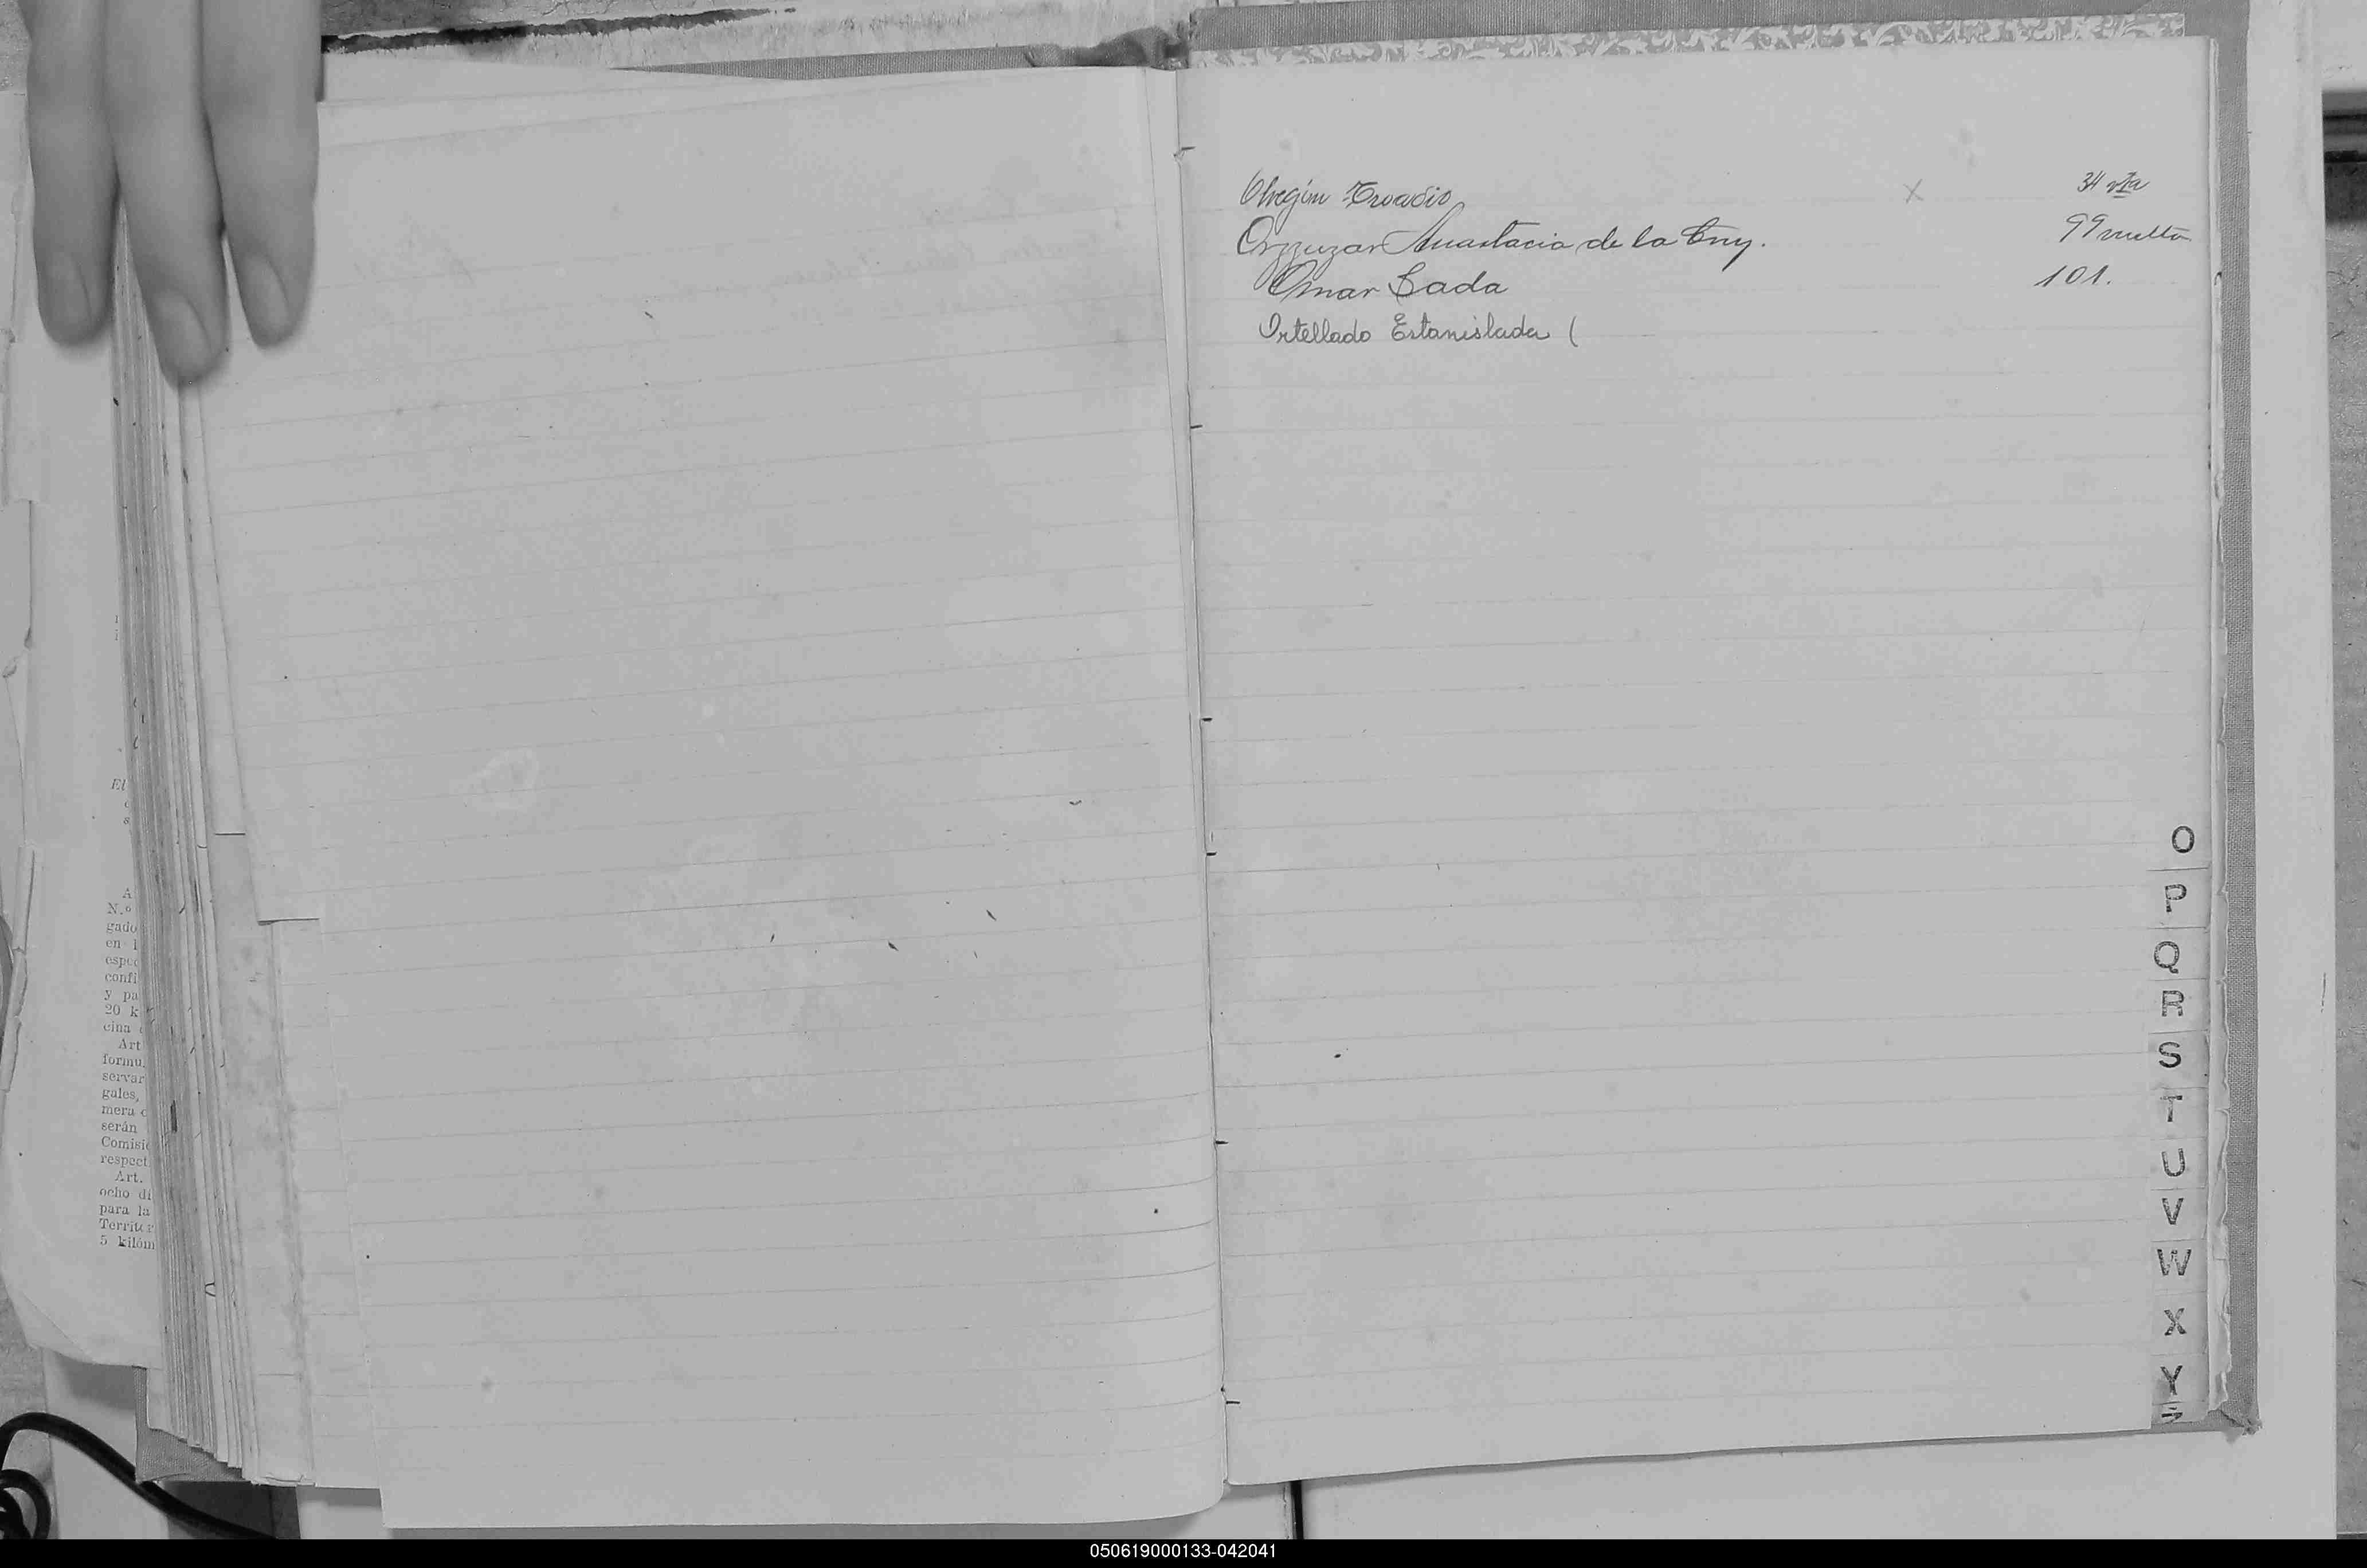 El
A
N.º
gado
en l
espec
confi
y pa
20 k
cina
Art
formu
servar
gales,
mera c
serán
Comisi
respect
Art.
ocho dí
para la
Territo
5 kilóm
Obregón Troadio x 34 vta
Anastacia de la Cruz. 99 vuelta
Omar Sada 101.
Ortellado Estanislada (
O
P
Q
R
S
T
U
V
W
X
Y
050619000133-042041